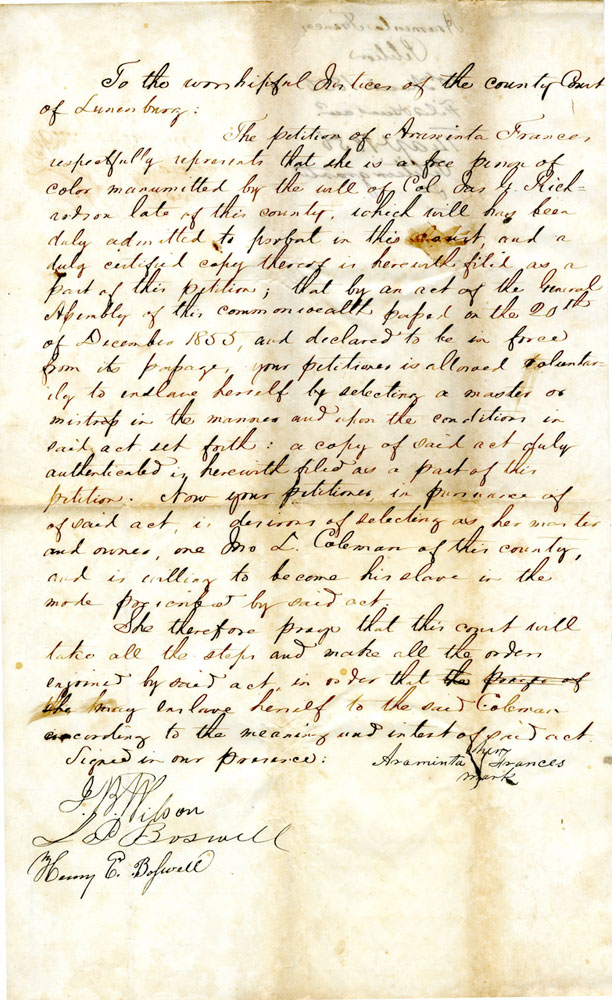 To the worshipful Justices of the county Court
of Lunenburg:
The petition of Araminta Frances
respectfully represents that she is a free person of
color manumitted by the will of Col Jas G. Rich-
rodson late of this county, which will has been
duly admitted to probat in this court, and a
duly certified copy thereof is herewith filed as a
part of this petition; that by an act of the General
Assembly of this commonwealth passed on the 20th
of December 1855, and declared to be in force
from its passage, your petitioner is allowed voluntar-
ily to enslave herself by selecting a master or
mistress in the manner and upon the conditions in
said act set forth: a copy of said act duly
authenticated is herewith filed as a part of this
petition. Now your petitioner, in pursuance of
of said act, is desirous of selecting as her master
and owner, one Jno L. Coleman of this county,
and is willing to become his slave in the
mode prescribed by said act
She therefore prays that this court will
take all the steps and make all the orders
enjoined by said act, in order that the praye of
she may enslave herself to the said Coleman
according to the meaning and intent of said act.
Signed in our presence:
Araminta her Frances
mark
J. W. Wilson
L D Boswell
Henry E. Boswell